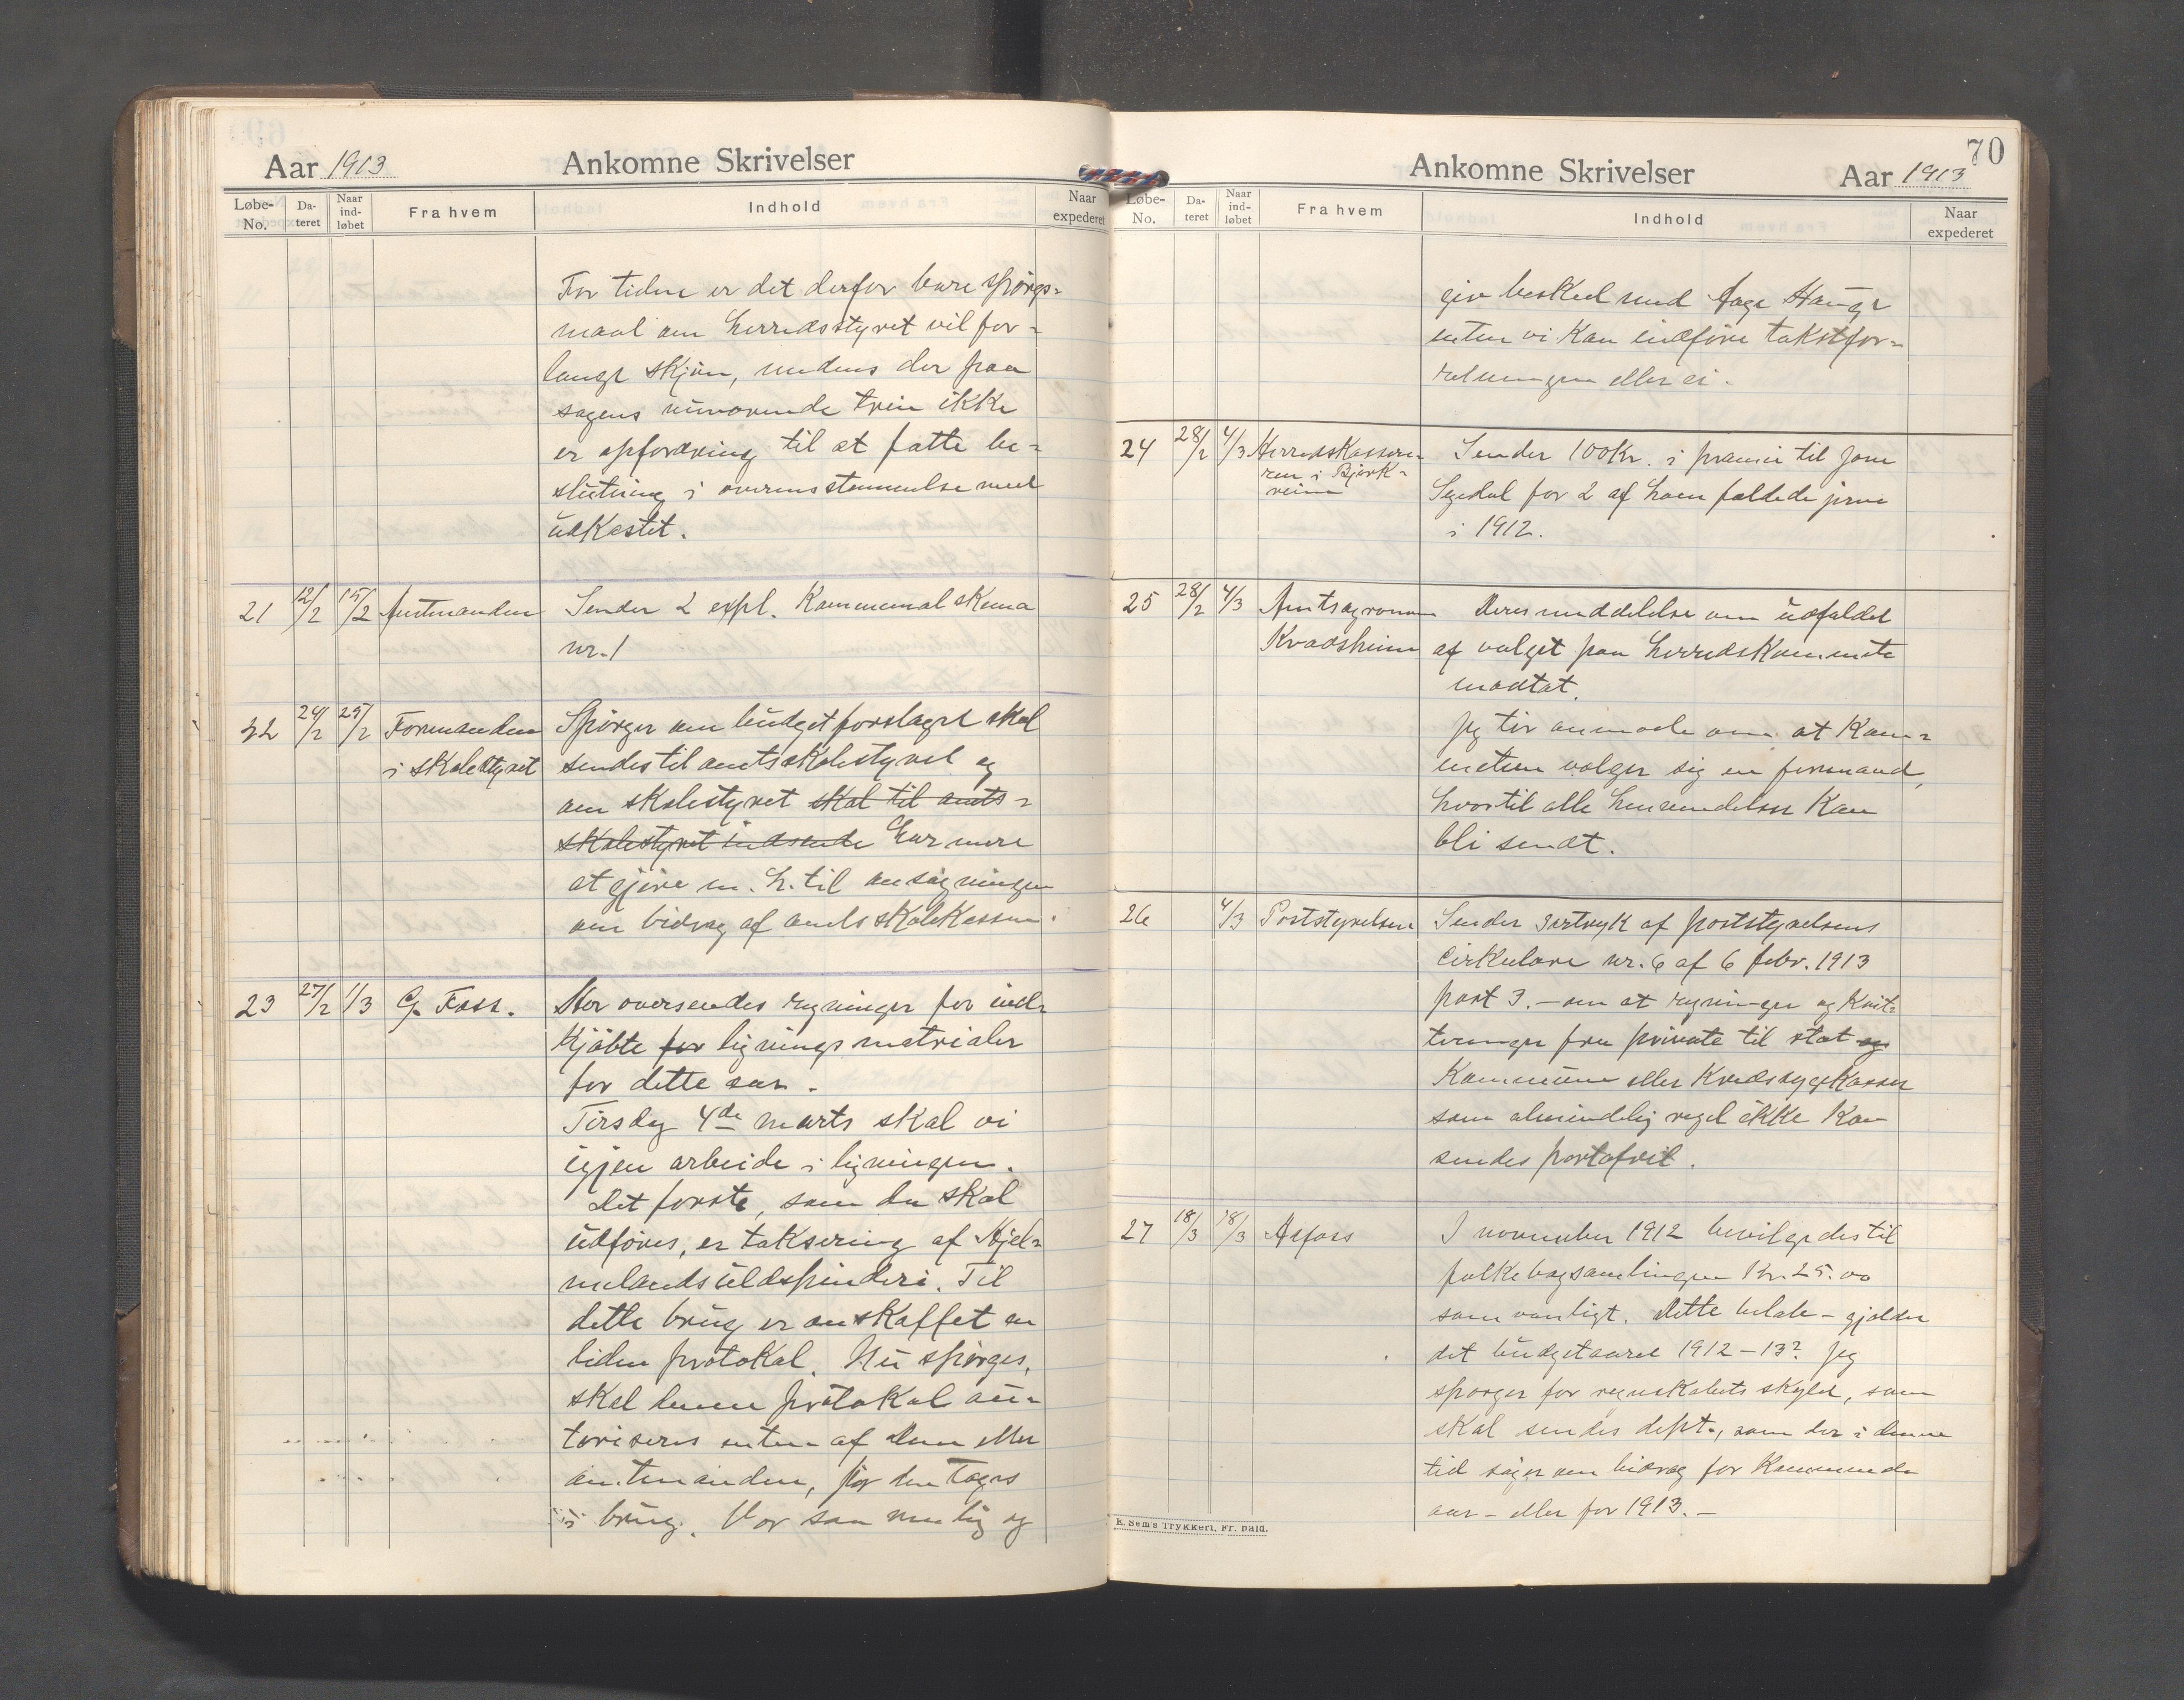 Aar 1913 Ankomne Skrivelser
Løbe-No. Dateret Naar indløbet Fra hvem Indhold Naar expederet
For tiden er det derfor bare spørgs-
maal om herredsstyret vil for-
lange skjøn, medens der paa
sagens nuværende trin ikke
er opfordring til at fatte be-
slutning i overensstemmelse med
udkastet.
21 12/2 15/2 Amtmanden Sender 2 expl. Kommunal skema
nr. 1
22 24/2 25/2 Formanden Spørger om budgetforslaget skal
i skolestyret sendes til amtsskolestyret og
om skolestyret skal til amts-
skolestyret indsende har mere
at gjøre m. h. til ansøgningen
om bidrag af amtsskolekassen.
23 27/2 1/3 G. Foss. Her oversendes regninger for ind-
kjøbte for ligningsmaterialer
for dette aar.
Tirsdag 4de marts skal vi
igjen arbeide i ligningen.
Det første, som der skal
udføres, er taksering af Hjel-
melands uldspinderi. Til
dette brug er anskaffet en
liden protokol. Nu spørges,
skal denne protokol au-
toriseres enten af Dem eller
amtmanden, før den tages
i brug. Vær saa venlig og
70
Ankomne Skrivelser Aar 1913
Løbe-No. Dateret Naar indløbet Fra hvem Indhold Naar expederet
giv besked med Aage Hauge
enten vi kan indføre takstfor-
retningen eller ei.
24 28/2 4/3 Herredskassere- Sender 100 kr. i præmie til Jone
ren i Bjerk- for 2 af ham fældede jerve
reim i 1912.
25 28/2 4/3 Amtsagronom Deres meddelelse om udfaldet
Kvadsheim af valget paa herredskomite
modtat.
Jeg tør anmode om at kom-
iteen vælger sig en formand,
hvortil alle henvendelser kan
bli sendt.
26 4/3 Poststyrelsen Sender særtryk af poststyrelsens
cirkulære nr. 6 af 6 febr. 1913
post 3. – om at regninger og kvit-
teringer fra private til stat og
kommune eller kredssygekasser
som almindelig regel ikke kan
sendes portofrit.
27 18/3 18/3 I november 1912 bevilgedes til
folkebogsamlingen Kr. 25.00
som vanligt. Dette beløb – gjælder
det budgetaaret 1912–13? Jeg
spørger for regnskabets skyld, som
skal sendes dept., som der i denne
tid søges om bidrag for kommende
aar – eller for 1913. –
E. Sem's Trykkeri, Fr. hald.